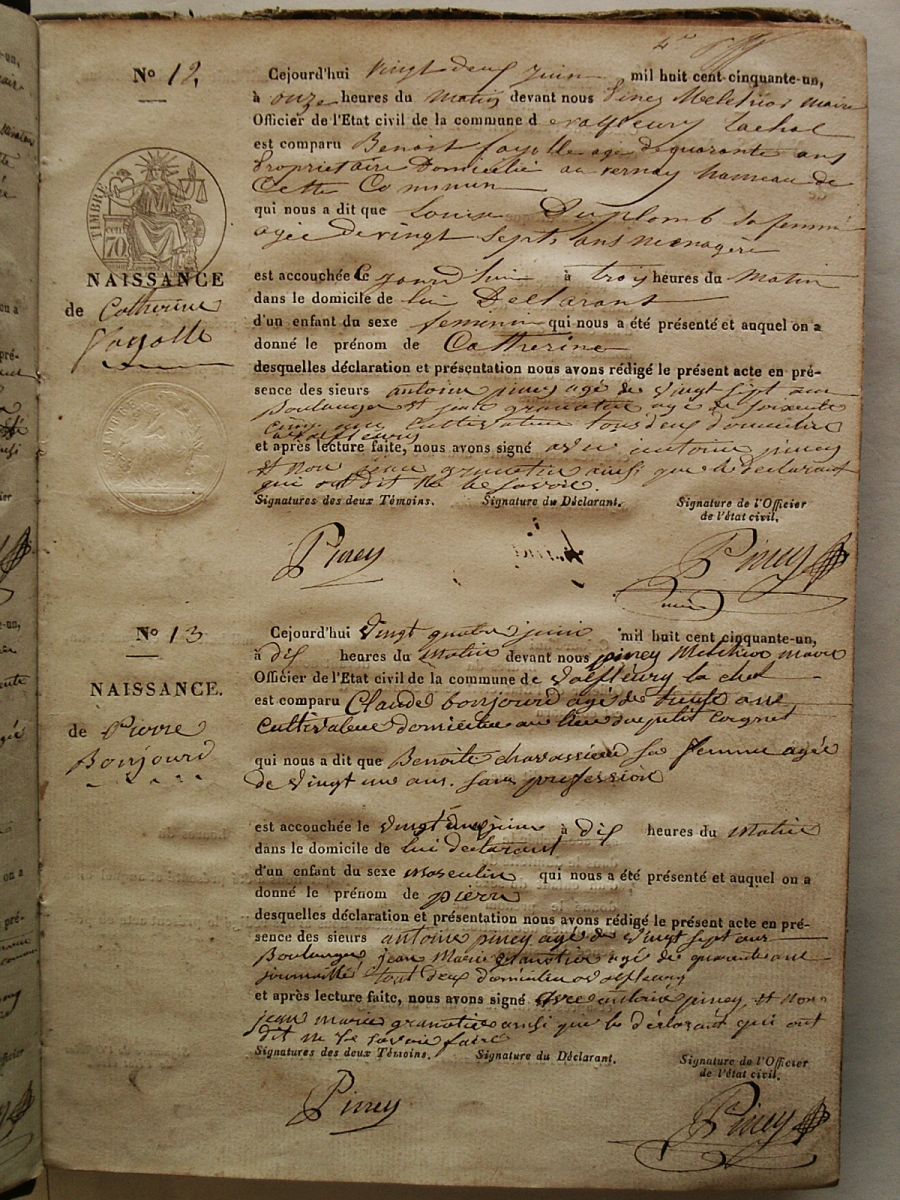 Nº 12
Cejourd'hui vingt deux juin mil huit cent cinquante-un,
à onze heures du matin devant nous Piney Melchior maire
Officier de l'Etat civil de la commune d evalfleury lachal
est comparu Benoit fayolle age de quarante ans
Proprietaire Domicilié au vernay hameau de
Cette Commun
qui nous a dit que Louise Duplomb sa femme
agée de vingt septs ans menagere
TIMBRE
cen 70
NAISSANCE
de Catherine
Fayolle
est accouchée Ce jourd huin à troy heures du Matin
dans le domicile de lui Declarant
d'un enfant du sexe feminin qui nous a été présenté et auquel on a
donné le prénom de Catherine
desquelles déclaration et présentation nous avons rédigé le présent acte en pré-
sence des sieurs antoine piney agé de vingt sept ans
Boulanger et jean granotier age de soixente
cinq ans cultivateur tous deux domicilie
a valfleury
et après lecture faite, nous avons signé avec antoine piney
et non jean granotier ainsi que le declarant
qui ont dit ne le savoir.
Signatures des deux Témoins. Signature du Déclarant. Signature de l'Officier
de l'état civil.
Piney Piney
Nº 13
Cejourd'hui vingt quatre juin mil huit cent cinquante-un,
à dix heures du Matin devant nous piney Melchior maire
Officier de l'Etat civil de la commune de valfleury la chal
est comparu Claude bonjourd agé de trente ans
cultivateur domicilie au lieu du petit coignet
NAISSANCE.
de Pierre
Bonjourd
qui nous a dit que Benoite chavassieux sa femme agée
de vingt un ans. sans profession
est accouchée le vingt deux juin à dix heures du Matin
dans le domicile de lui declarant
d'un enfant du sexe masculin qui nous a été présenté et auquel on a
donné le prénom de pierre
desquelles déclaration et présentation nous avons rédigé le présent acte en pré-
sence des sieurs antoine piney agé de vingt sept ans
Boulanger, jean Marie granotier agé de quarante ans
journallié tout deux domicilie a valfleury
et après lecture faite, nous avons signé avec antoine piney, et non
jean marie granotier ainsi que le déclarant qui ont
dit ne le savoir faire
Signatures des deux Témoins. Signature du Déclarant. Signature de l'Officier
de l'état civil.
Piney Piney